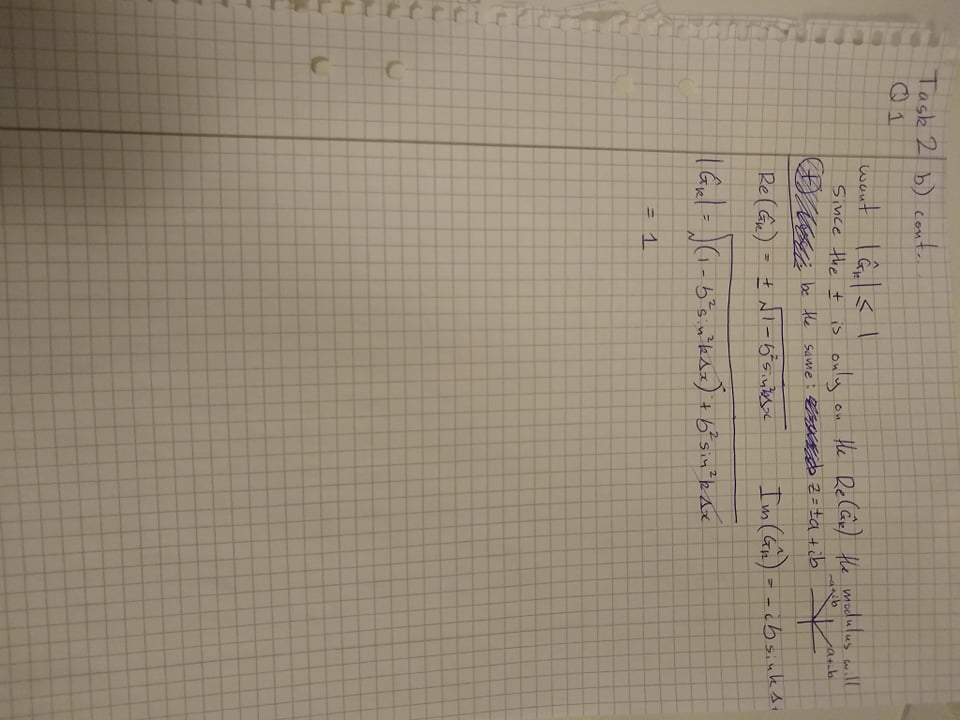 Task 2 b) cont...
Q1
want |Ĝₖ| ≤ 1
since the ± is only on the Re(Ĝₖ) the modulus will
be the same: z = ±a + ib
-a+ib
a+ib
Re(Ĝₖ) = ± √(1 - b² sin² kΔx) Im(Ĝₖ) = -ib sin kΔ
|Ĝₖ| = √((1 - b² sin² kΔx) + b² sin² kΔx)
= 1